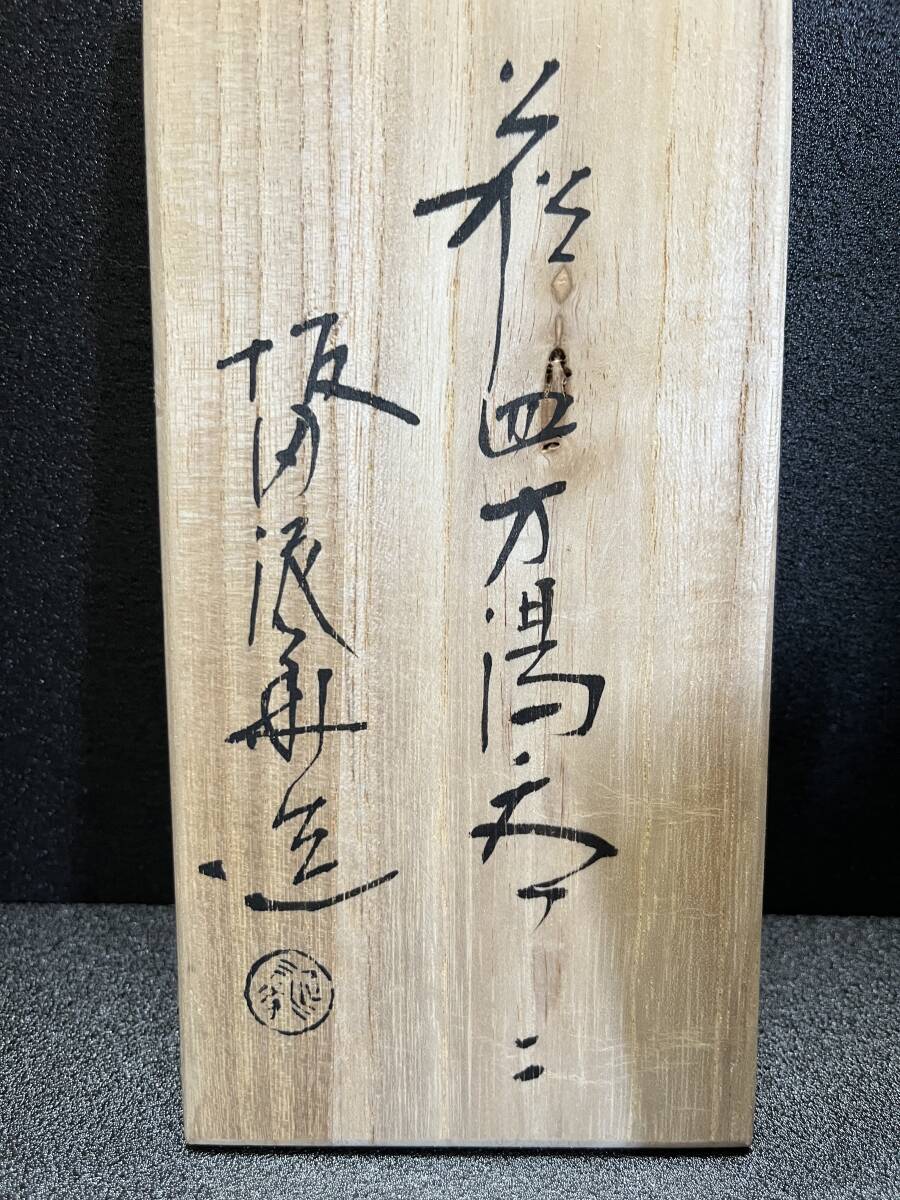 萩四方湯呑 二
坂田泥華造